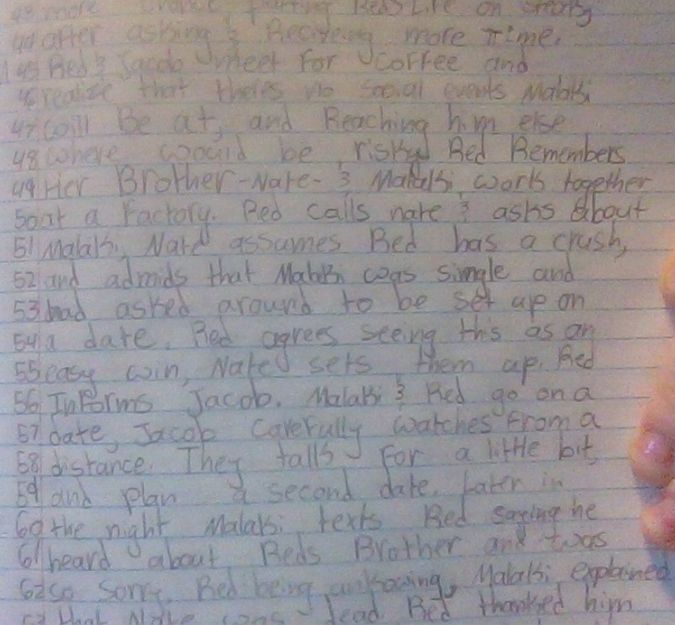 43 more chance putting Reds Life on
44 after asking & Recieving more time.
45 Red & Jacob meet for coffee and
46 realize that theres no social events Malaki
47 will Be at, and Reaching him else
48 where would be risky. Red Remembers
49 Her Brother-Nate- & Malaki work together
50 at a Factory. Red calls nate & asks about
51 Malaki, Nate assumes Red has a crush,
52 and that Malaki was single and
53 had asked around to be set up on
54 a date. Red agrees seeing this as an
55 easy win, Nate sets them up. Red
56 Informs Jacob. Malaki & Red go on a
57 date, Jacob carefully watches from a
58 distance. They talk for a little bit
59 and plan a second date. Later in
60 the night Malaki texts Red saying he
61 heard about Reds Brother and was
62 so sorry. Red being unkowing, Malaki explained
63 that Nate was dead. Red thanked him